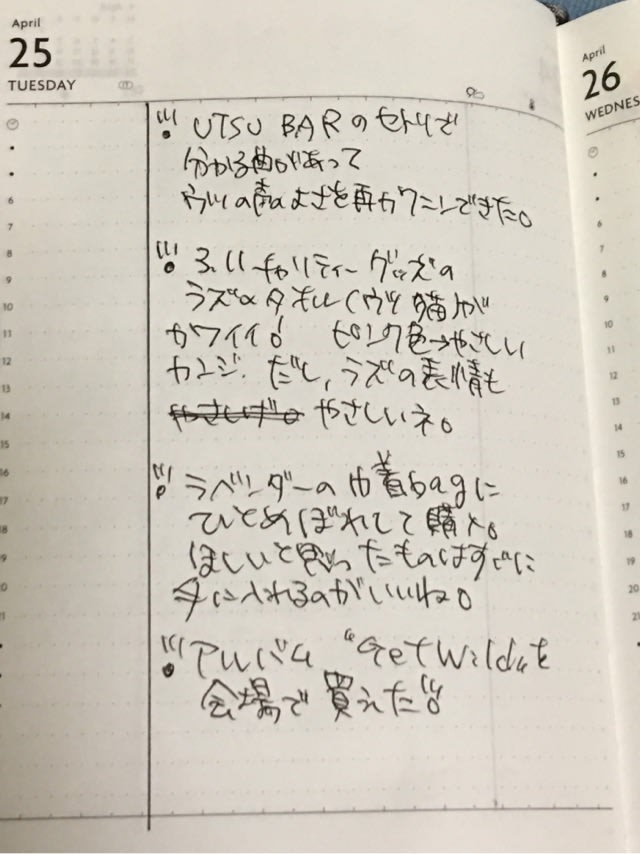 April
25
TUESDAY
6
7
8
9
10
11
12
13
14
15
16
17
18
19
20
21
UTSU BARのセトリで
分かる曲があって
ウツの声のよさを再カクニンできた。
3.11チャリティーグッズの
ラズ×タオル(ウツ猫)が
カワイイ! ピンク色→やさしい
カンジ.だし,ラズの表情も
やさしいネ。
ラベンダーの巾着bagに
ひとめぼれして購入。
ほしいと思ったものはすぐに
手に入れるのがいいね。
アルバム "Get Wild"を
会場で買えた!!!
April
26
WEDNES
6
7
8
9
10
11
12
13
14
15
16
17
18
19
20
21